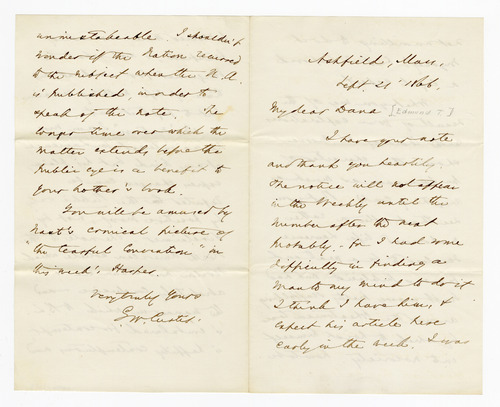 Ashfield, Mass.
Sept 21 1866.
My dear Dana [Edmund T.?]
I have your note
and thank you heartily.
The notice will not appear
in the Weekly until the
number after the next
probably. - for I had some
difficulty in finding a
man to my mind to do it
I think I have him, &
expect his article here
early in the week. I was
unmistakeable. I shouldn't
wonder if the Nation recurred
to the subject when the N. A.
is published, in order to
speak of the note. The
longer time over which the
matter extends before the
public eye is a benefit to
your brother's book.
You will be amused by
Nast's comical picture of
"the tearful Convention" in
this week's Harper.
Very truly yours
G. W. Curtis.